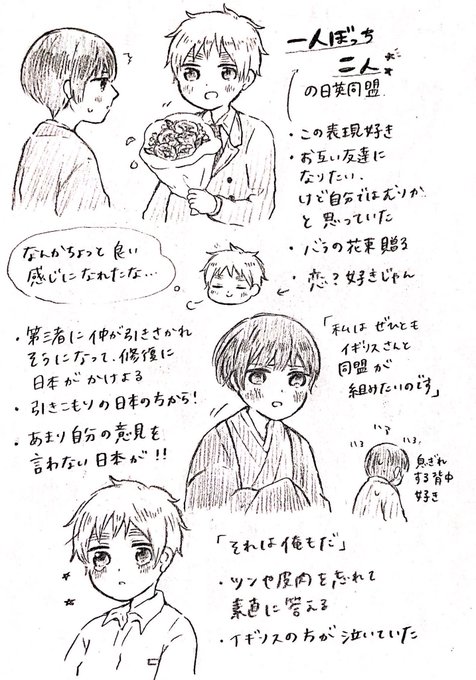 一人ぼっち
二人
の日英同盟
・この表現好き
・お互い友達に
なりたい、
けど自分ではムリか
と思っていた
・バラの花束贈る
・恋?好きじゃん
なんかちょっと良い
感じになれたな…
・第三者に仲が引きさかれ
そうになって、修復に
日本がかけよる
・引きこもりの日本の方から!
・あまり自分の意見を
言わない日本が!!
「私はぜひとも
イギリスさんと
同盟が
組みたいのです」
ハァ
ハァ
ハァ
息ぎれ
する背中
好き
「それは俺もだ」
・ツンや皮肉を忘れて
素直に答える
・イギリスの方が泣いていた